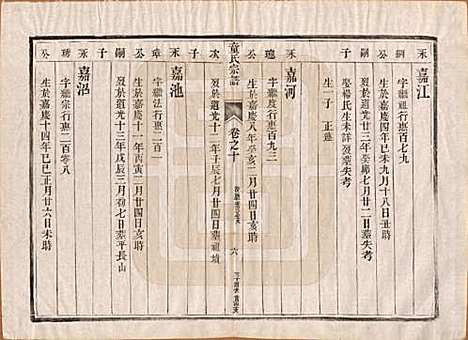 禾
嘉江
綱
字繼祖行惠百七九
公
生於嘉慶四年己未九月十八日丑時
嗣
歿於道光二十三年癸卯七月廿二日墓失考
娶楊氏生未詳歿墓失考
子
生一子 正蓮
禾
嘉河
瑰
字繼度行惠百九三
公
生於嘉慶八年癸亥二月廿四日亥時
次
歿於道光十二年壬辰七月廿四日墓祖墳
子
童氏宗譜
卷之十
六
禾
嘉池
章
字繼法行惠二百一
公
生於嘉慶十一年丙寅二月廿四日亥時
嗣
歿於道光十三年戊辰三月初七日墓平長山
子
禾
嘉沼
琇
字繼宗行惠二百零八
公
生於嘉慶十四年己巳正月廿六日未時